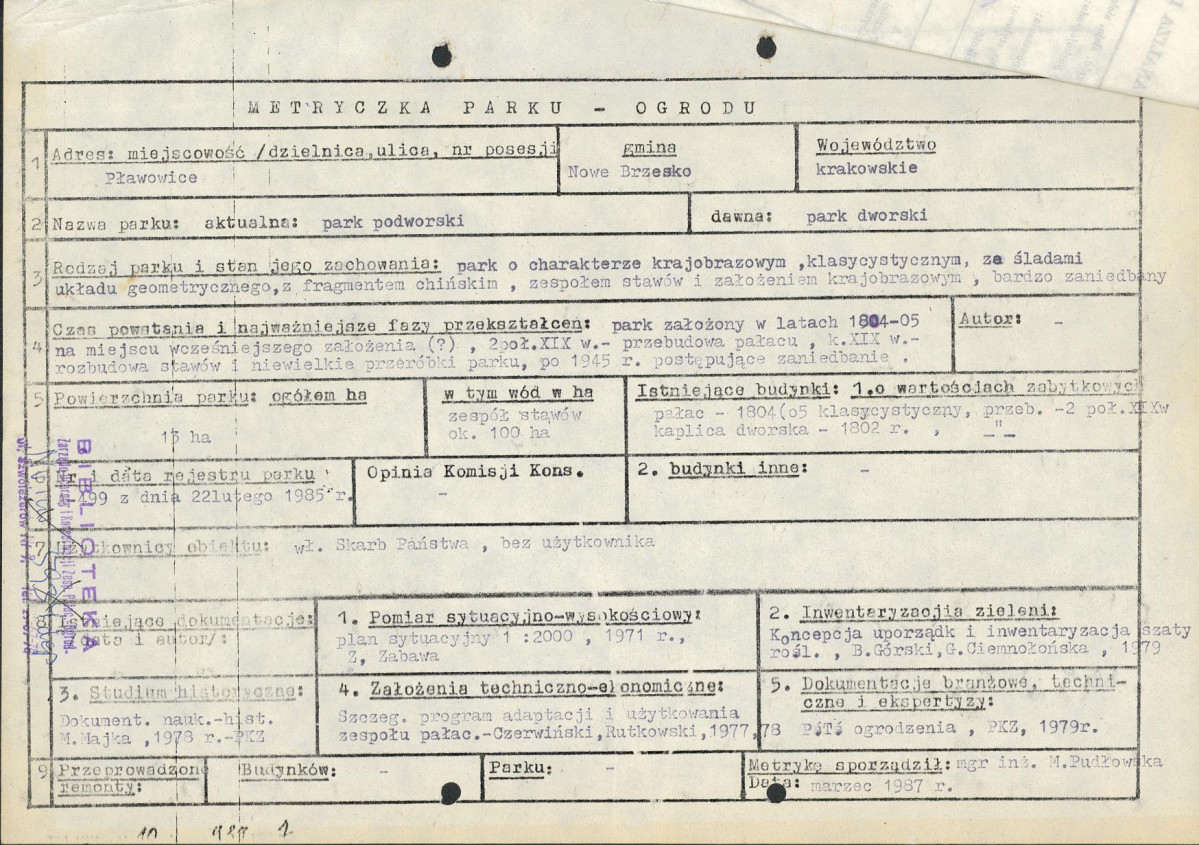 METRYCZKA PARKU - OGRODU
1 Adres: miejscowość /dzielnica,ulica, nr posesji
Pławowice
gmina
Nowe Brzesko
Województwo
krakowskie
2 Nazwa parku: aktualna: park podworski
dawna: park dworski
3 Rodzaj parku i stan jego zachowania: park o charakterze krajobrazowym ,klasycystycznym, ze śladami
układu geometrycznego,z fragmentem chińskim , zespołem stawów i założeniem krajobrazowym , bardzo zaniedbany
4 Czas powstania i najważniejsze fazy przekształceń: park założony w latach 1804-05
na miejscu wcześniejszego założenia (?) , 2poł.XIX w.- przebudowa pałacu , k.XIX w.-
rozbudowa stawów i niewielkie przeróbki parku, po 1945 r. postępujące zaniedbanie .
Autor: -
5 Powierzchnia parku: ogółem ha
13 ha
w tym wód w ha
zespół stawów
ok. 100 ha
Istniejące budynki: 1.o wartościach zabytkowych
pałac - 1804(o5 klasycystyczny, przeb. -2 poł.XIXw
kaplica dworska - 1802 r. , -"-
Nr i data rejestru parku
499 z dnia 22lutego 1985 r.
Opinia Komisji Kons.
-
2. budynki inne: -
7 Użytkownicy obiektu: wł. Skarb Państwa , bez użytkownika
8 Istniejące dokumentacje:
/data i autor/:
1. Pomiar sytuacyjno-wysokościowy:
plan sytuacyjny 1 :2000 , 1971 r.,
Z, Zabawa
2. Inwentaryzacjia zieleni:
Koncepcja uporządk i inwentaryzacja szaty
rośl. , B.Górski,G.Ciemnołońska , 1979
3. Studium historyczne:
Dokument. nauk.-hist.
M.Majka ,1978 r.-PKZ
4. Założenia techniczno-ekonomiczne:
Szczeg. program adaptacji i użytkowania
zespołu pałac.-Czerwiński,Rutkowski,1977,78
5. Dokumentacje branżowe, techni-
czne i ekspertyzy:
PiTś ogrodzenia , PKZ, 1979r.
9 Przeprowadzone
remonty:
Budynków: -
Parku: -
Metrykę sporządził: mgr inż. M.Pudłowska
Data: marzec 1987 r.
BIBLIOTEKA